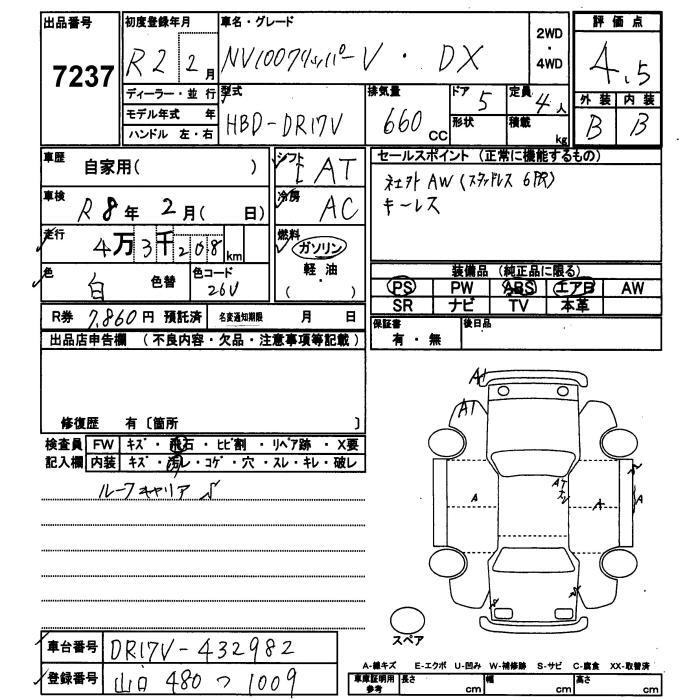 出品番号 7237
初度登録年月 R2 2月
車名・グレード NV100クリッパーV ・ DX
2WD ・ 4WD
評価点 4.5
外装 B 内装 B
ディーラー・並行
モデル年式 年
ハンドル 左・右
型式 HBD-DR17V
排気量 660 CC
ドア 5
形状
定員 4人
積載 kg
車歴 自家用( )
シフト AT
車検 R8年2月( 日)
冷房 AC
走行 4万3千208km
燃料 ガソリン
軽・油
( )
色 白 色替
色コード 26V
セールスポイント (正常に機能するもの)
社外AW (スタッドレス 6PR)
キーレス
装備品 (純正品に限る)
PS PW ABS エアB AW
SR ナビ TV 本革
R券 7,860円 預託済 名変通知期限 月 日
保証書 有・無
後日品
出品店申告欄 (不良内容・欠品・注意事項等記載)
修復歴 有〔箇所 〕
検査員 FW キズ・飛石・ヒビ割・リペア跡・X要
記入欄 内装 キズ・汚レ・コゲ・穴・スレ・キレ・破レ
ルーフキャリア
A1
A1
A
A
A
スペア
車台番号 DR17V-432982
登録番号 山口 480 つ 1009
A-線キズ E-エクボ U-凹み W-補修跡 S-サビ C-腐食 XX-取替済
車庫証明用参考 長さ cm 幅 cm 高さ cm